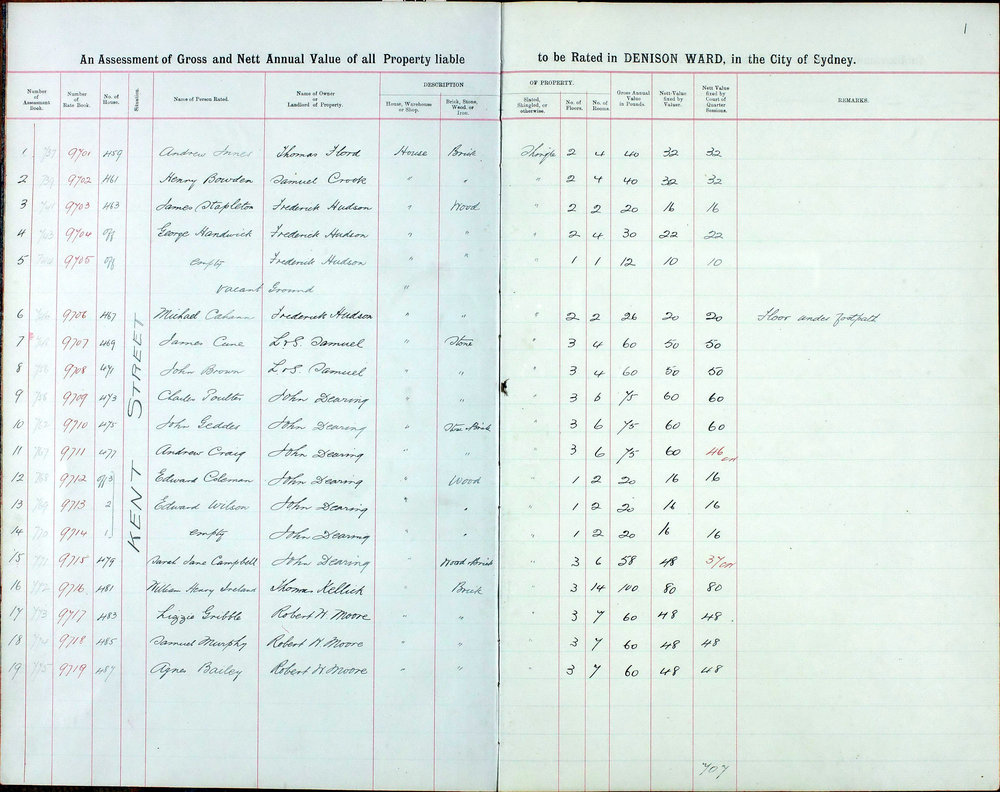 1
An Assessment of Gross and Nett Annual Value of all Property liable to be Rated in DENISON WARD, in the City of Sydney.
Number of Assessment Book. Number of Rate Book. No. of House. Situation. Name of Person Rated. Name of Owner or Landlord of Property. DESCRIPTION OF PROPERTY. House, Warehouse or Shop. Brick, Stone, Wood, or Iron. Slated, Shingled, or otherwise. No. of Floors. No. of Rooms. Gross Annual Value in Pounds. Nett Value fixed by Valuer. Nett Value fixed by Court of Quarter Sessions. REMARKS.
KENT STREET
1 737 9701 459 Andrew Innes Thomas Flord House Brick Shingle 2 4 40 32 32
2 739 9702 461 Henry Bowden Samuel Crook " " " 2 4 40 32 32
3 9703 463 James Stapleton Frederick Hudson " Wood " 2 2 20 16 16
4 9704 off George Handwick Frederick Hudson " " " 2 4 30 22 22
5 9705 off empty Frederick Hudson " " " 1 1 12 10 10
Vacant Ground "
6 9706 467 Michael Frederick Hudson " " " 2 2 26 20 20 Floor under footpath
7 9707 469 James Cune L & S. Samuel Stone " 3 4 60 50 50
8 9708 471 John Brown L & S. Samuel " " " 3 4 60 50 50
9 9709 473 Charles Poulter John Dearing " " " 3 6 75 60 60
10 9710 475 John Geddes John Dearing " Stone Brick " 3 6 75 60 60
11 9711 477 Andrew Craig John Dearing " " " 3 6 75 60 46
12 9712 off 3 Edward Coleman John Dearing " Wood " 1 2 20 16 16
13 769 9713 2 Edward Wilson John Dearing " " 1 2 20 16 16
14 770 9714 1 empty John Dearing " " 1 2 20 16 16
15 771 9715 479 Sarah Jane Campbell John Dearing Wood Brick " 3 6 58 48 37
16 772 9716 481 William Henry Ireland Thomas Kellick Brick " 3 14 100 80 80
17 773 9717 483 Lizzie Gribble Robert W. Moore " " " 3 7 60 48 48
18 774 9718 485 Samuel Murphy Robert W. Moore " " " 3 7 60 48 48
19 775 9719 487 Agnes Bailey Robert W. Moore " " " 3 7 60 48 48
707